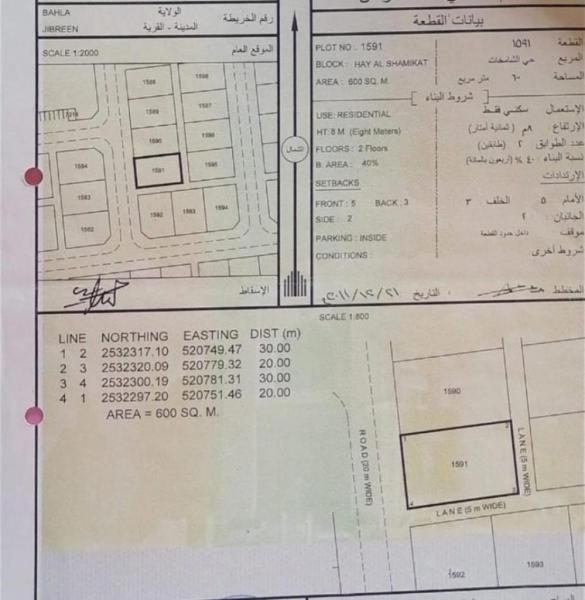 BAHLA
الولاية
JIBREEN
المدينة - القرية
رقم الخريطة
SCALE 1:2000
الموقع العام
1588
1598
1589
1590
1591
1595
1594
1593
1592
1593
1594
الإسقاط
الشمال
بيانات القطعة
PLOT NO : 1591
١٥٩١
القطعة
BLOCK : HAY AL SHAMIKAT
حي الشامخات
المربع
AREA : 600 SQ. M.
متر مربع
المساحة
شروط البناء
USE: RESIDENTIAL
سكني فقط
الإستعمال
HT: 8 M (Eight Meters)
٨م (ثمانية أمتار)
الإرتفاع
FLOORS : 2 Floors
٢ (طابقين)
عدد الطوابق
B. AREA : 40%
٤٠ % (أربعون بالمائة)
نسبة البناء
SETBACKS
الإرتدادات
FRONT : 5 BACK : 3
الخلف ٣
الأمام ٥
SIDE : 2
الجانبان ٢
PARKING : INSIDE
داخل حدود القطعة
موقف
CONDITIONS :
شروط أخرى
المخطط
التاريخ
SCALE 1:800
LINE NORTHING EASTING DIST (m)
1 2 2532317.10 520749.47 30.00
2 3 2532320.09 520779.32 20.00
3 4 2532300.19 520781.31 30.00
4 1 2532297.20 520751.46 20.00
AREA = 600 SQ. M.
1590
1
2
1591
4
3
ROAD (20 m WIDE)
LANE (5 m WIDE)
LANE (5 m WIDE)
1592
1593